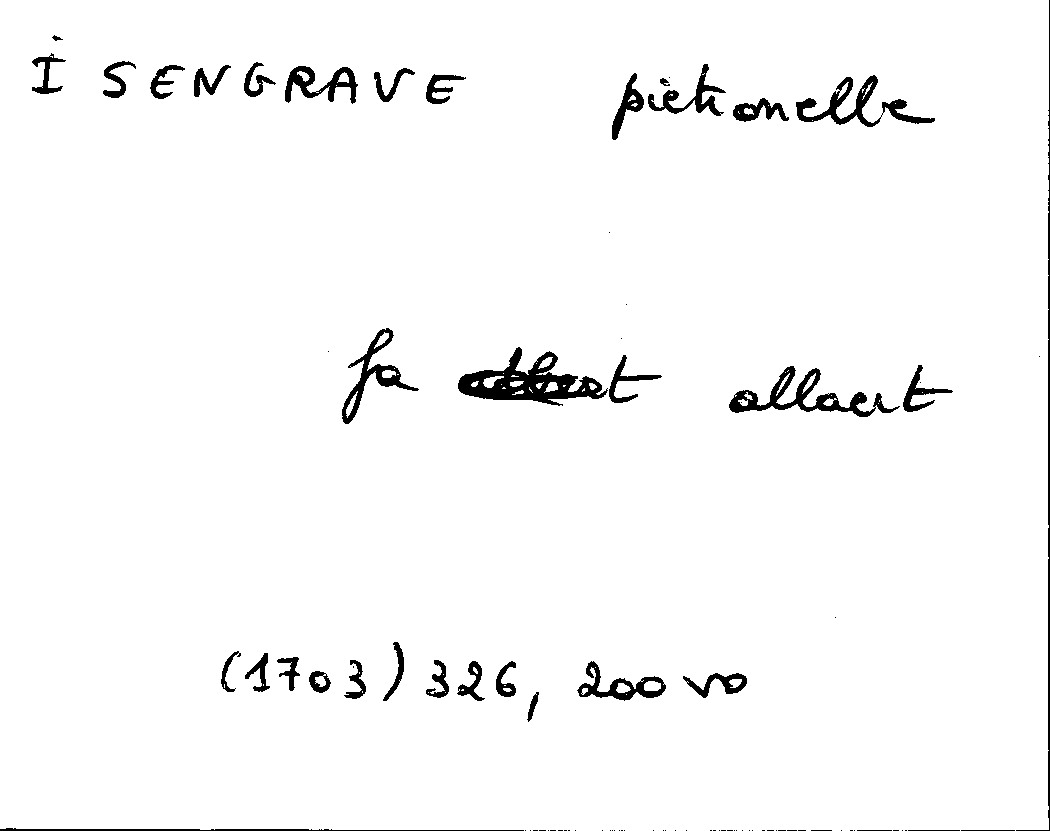 ISENGRAVE pietronelle
fa allaert
(1703) 326, 200 vo